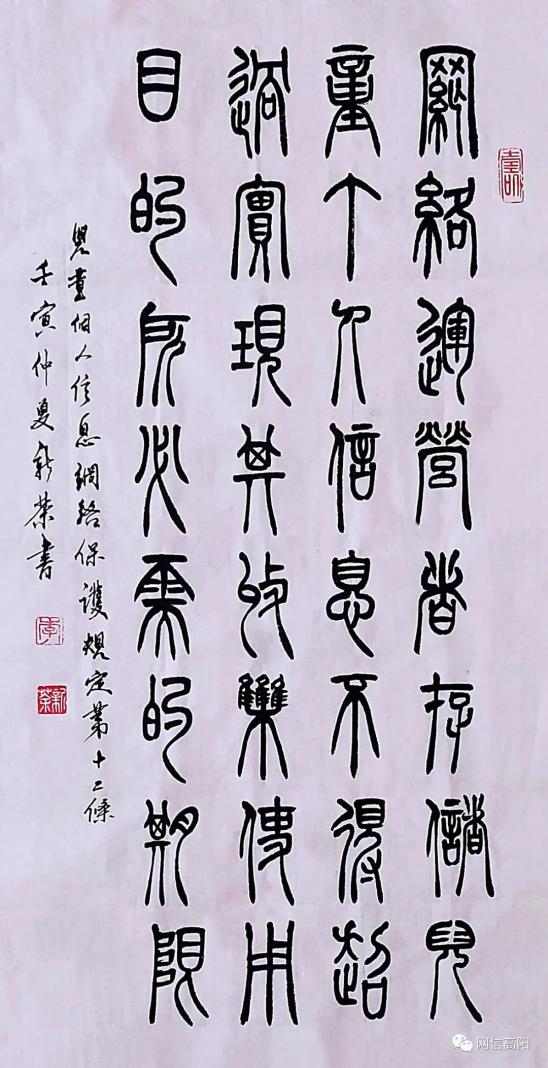 網絡運營者存儲兒
童个人信息不得超
過實現其收雧使用
目的所必需的期限
兒童個人信息網絡保護規定第十二條
壬寅仲夏新榮書
李
新榮
网信高阳